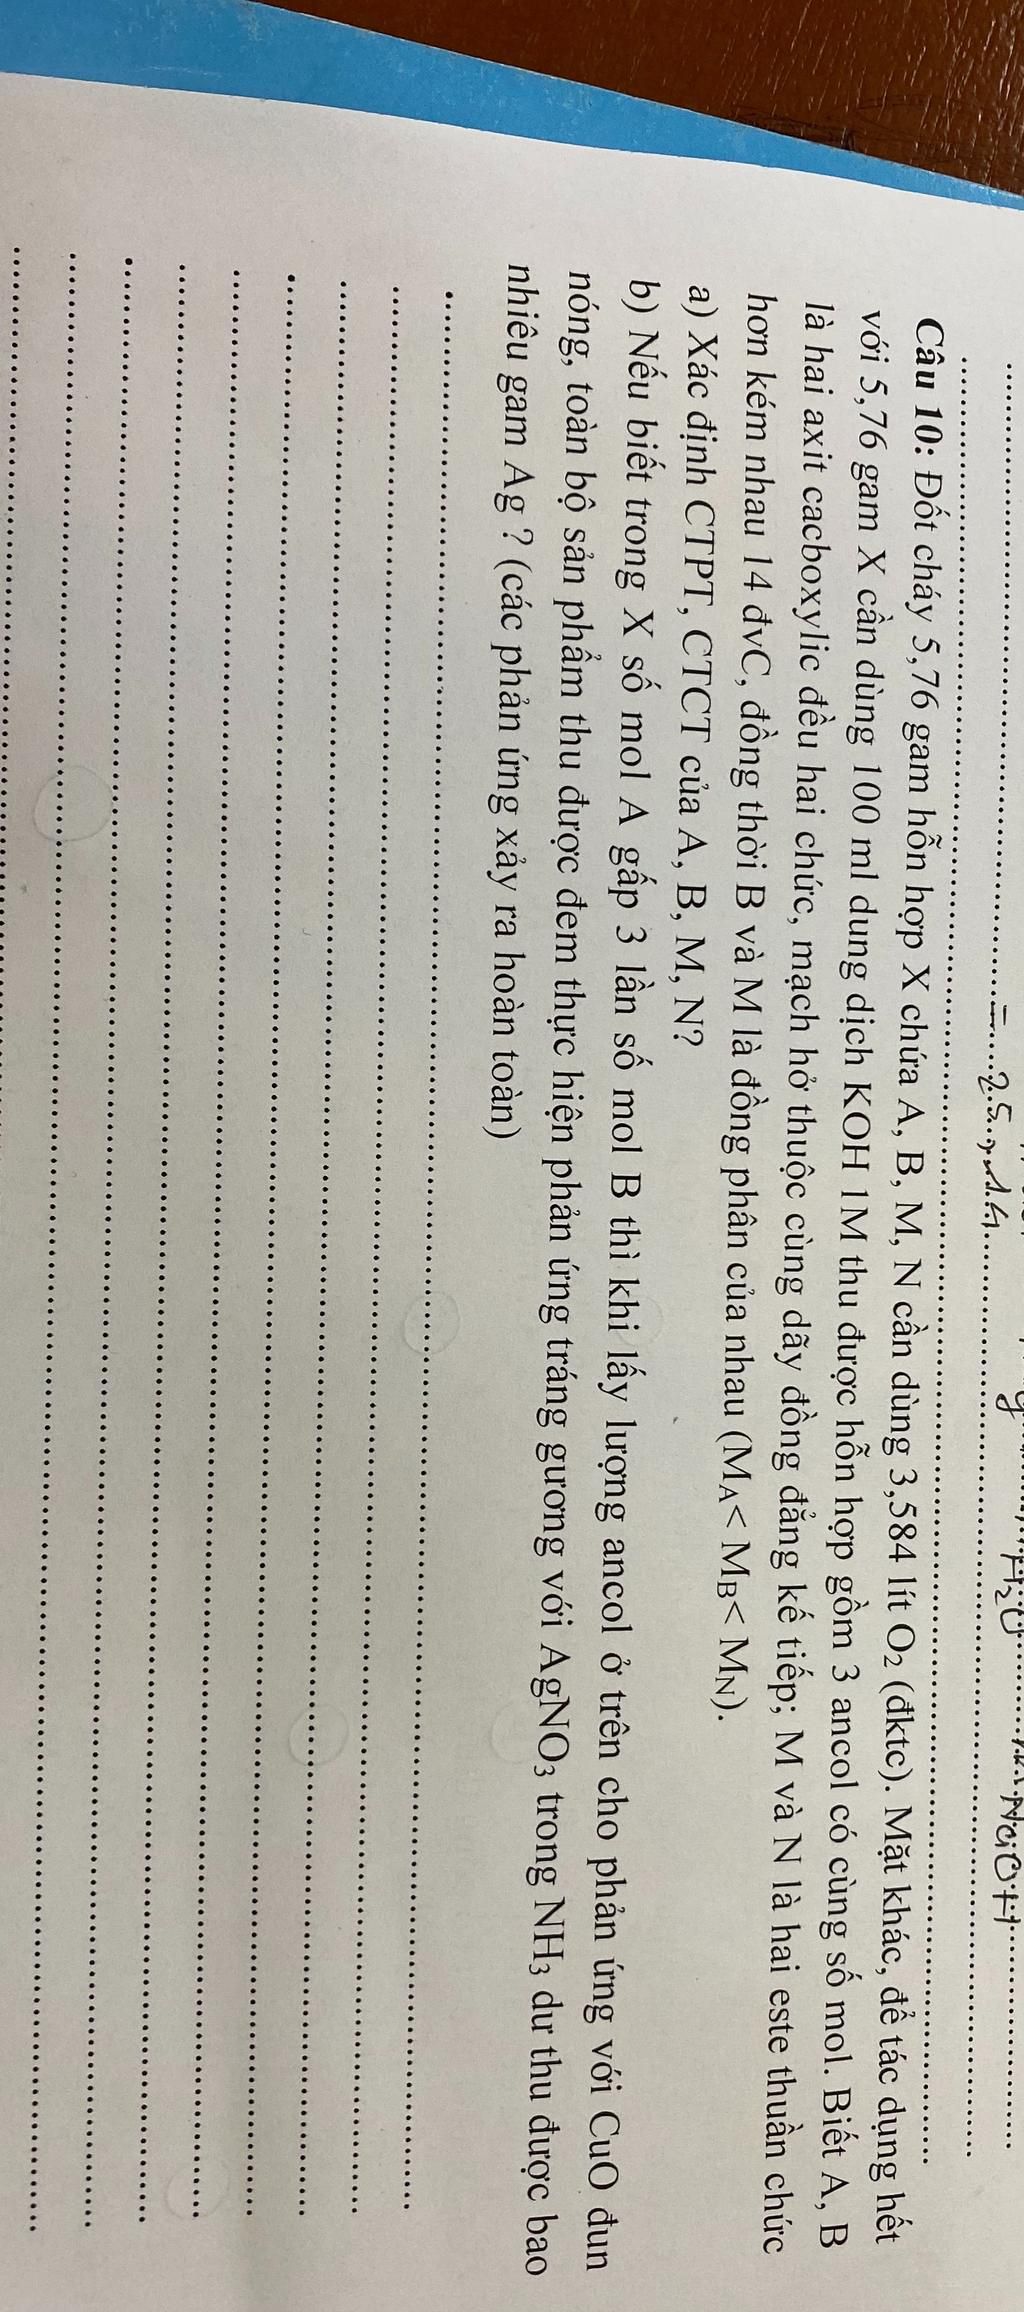 = 2.5.
H₂O
NaOH
Câu 10: Đốt cháy 5,76 gam hỗn hợp X chứa A, B, M, N cần dùng 3,584 lít O₂ (đktc). Mặt khác, để tác dụng hết
với 5,76 gam X cần dùng 100 ml dung dịch KOH 1M thu được hỗn hợp gồm 3 ancol có cùng số mol. Biết A, B
là hai axit cacboxylic đều hai chức, mạch hở thuộc cùng dãy đồng đẳng kế tiếp; M và N là hai este thuần chức
hơn kém nhau 14 đvC, đồng thời B và M là đồng phân của nhau (M_A< M_B< M_N).
a) Xác định CTPT, CTCT của A, B, M, N?
b) Nếu biết trong X số mol A gấp 3 lần số mol B thì khi lấy lượng ancol ở trên cho phản ứng với CuO đun
nóng, toàn bộ sản phẩm thu được đem thực hiện phản ứng tráng gương với AgNO₃ trong NH₃ dư thu được bao
nhiêu gam Ag ? (các phản ứng xảy ra hoàn toàn)